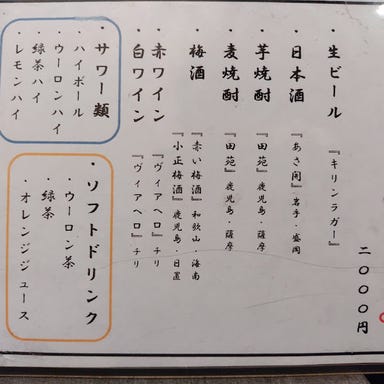 二〇〇〇円
・生ビール 『キリンラガー』
・日本酒 『あさ開』岩手・盛岡
・芋焼酎 『田苑』鹿児島・薩摩
・麦焼酎 『田苑』鹿児島・薩摩
・梅酒 『赤い梅酒』和歌山・海南
『小正梅酒』鹿児島・日置
・赤ワイン 『ヴィアヘロ』チリ
・白ワイン 『ヴィアヘロ』チリ
・サワー類
・ハイボール
・ウーロンハイ
・緑茶ハイ
・レモンハイ
・ソフトドリンク
・ウーロン茶
・緑茶
・オレンジジュース